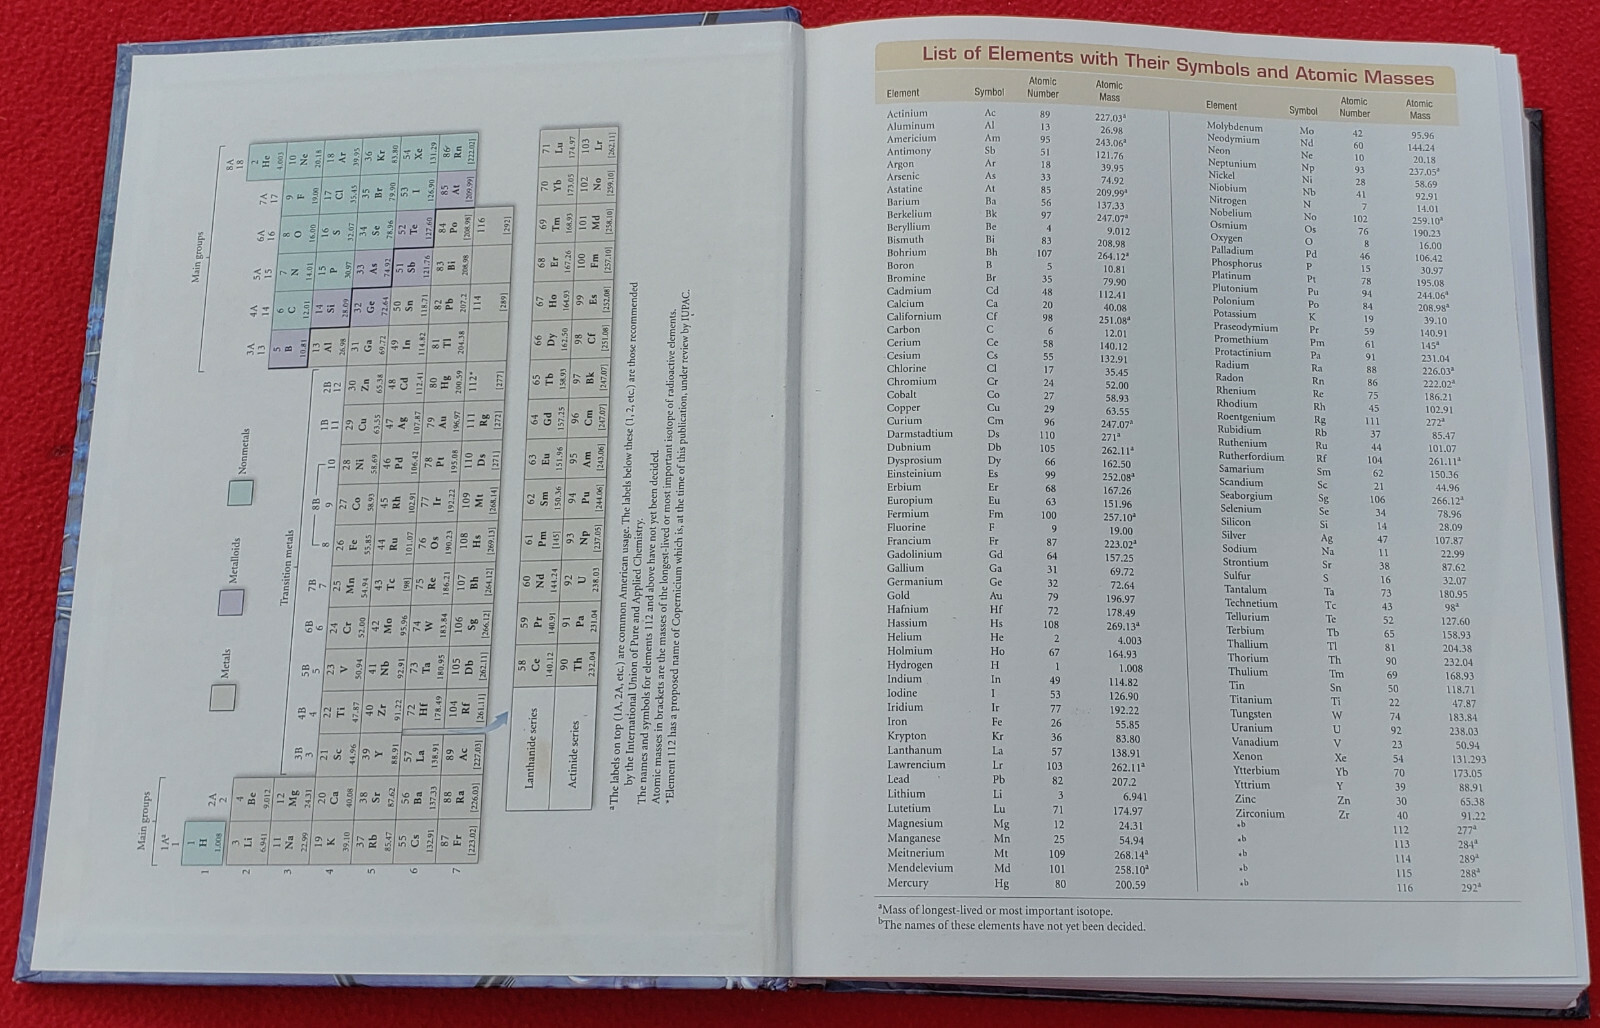 Main groups
Main groups
1Aᵃ
1
8A
18
1
H
1.008
2A
2
Metals
Metalloids
Nonmetals
3A 4A 5A 6A 7A
13 14 15 16 17
2
He
4.003
3 4 5 6 7 8 9 10
Li Be B C N O F Ne
6.941 9.012 10.81 12.01 14.01 16.00 19.00 20.18
Transition metals
3B 4B 5B 6B 7B 8B 1B 2B
3 4 5 6 7 8 9 10 11 12
11 12 13 14 15 16 17 18
Na Mg Al Si P S Cl Ar
22.99 24.31 26.98 28.09 30.97 32.07 35.45 39.95
19 20 21 22 23 24 25 26 27 28 29 30 31 32 33 34 35 36
K Ca Sc Ti V Cr Mn Fe Co Ni Cu Zn Ga Ge As Se Br Kr
39.10 40.08 44.96 47.87 50.94 52.00 54.94 55.85 58.93 58.69 63.55 65.38 69.72 72.64 74.92 78.96 79.90 83.80
37 38 39 40 41 42 43 44 45 46 47 48 49 50 51 52 53 54
Rb Sr Y Zr Nb Mo Tc Ru Rh Pd Ag Cd In Sn Sb Te I Xe
85.47 87.62 88.91 91.22 92.91 95.96 [98] 101.07 102.91 106.42 107.87 112.41 114.82 118.71 121.76 127.60 126.90 131.29
55 56 57 72 73 74 75 76 77 78 79 80 81 82 83 84 85 86
Cs Ba La Hf Ta W Re Os Ir Pt Au Hg Tl Pb Bi Po At Rn
132.91 137.33 138.91 178.49 180.95 183.84 186.21 190.23 192.22 195.08 196.97 200.59 204.38 207.2 208.98 [208.98] [209.99] [222.02]
87 88 89 104 105 106 107 108 109 110 111 112* 114 116
Fr Ra Ac Rf Db Sg Bh Hs Mt Ds Rg
[223.02] [226.03] [227.03] [261.11] [262.11] [266.12] [264.12] [269.13] [268.14] [271] [272] [277] [289] [292]
1
2
3
4
5
6
7
Lanthanide series
58 59 60 61 62 63 64 65 66 67 68 69 70 71
Ce Pr Nd Pm Sm Eu Gd Tb Dy Ho Er Tm Yb Lu
140.12 140.91 144.24 [145] 150.36 151.96 157.25 158.93 162.50 164.93 167.26 168.93 173.05 174.97
Actinide series
90 91 92 93 94 95 96 97 98 99 100 101 102 103
Th Pa U Np Pu Am Cm Bk Cf Es Fm Md No Lr
232.04 231.04 238.03 [237.05] [244.06] [243.06] [247.07] [247.07] [251.08] [252.08] [257.10] [258.10] [259.10] [262.11]
ᵃThe labels on top (1A, 2A, etc.) are common American usage. The labels below these (1, 2, etc.) are those recommended
by the International Union of Pure and Applied Chemistry.
The names and symbols for elements 112 and above have not yet been decided.
Atomic masses in brackets are the masses of the longest-lived or most important isotope of radioactive elements.
*Element 112 has a proposed name of Copernicium which is, at the time of this publication, under review by IUPAC.
List of Elements with Their Symbols and Atomic Masses
Element Symbol Atomic Number Atomic Mass
Actinium Ac 89 227.03ᵃ
Aluminum Al 13 26.98
Americium Am 95 243.06ᵃ
Antimony Sb 51 121.76
Argon Ar 18 39.95
Arsenic As 33 74.92
Astatine At 85 209.99ᵃ
Barium Ba 56 137.33
Berkelium Bk 97 247.07ᵃ
Beryllium Be 4 9.012
Bismuth Bi 83 208.98
Bohrium Bh 107 264.12ᵃ
Boron B 5 10.81
Bromine Br 35 79.90
Cadmium Cd 48 112.41
Calcium Ca 20 40.08
Californium Cf 98 251.08ᵃ
Carbon C 6 12.01
Cerium Ce 58 140.12
Cesium Cs 55 132.91
Chlorine Cl 17 35.45
Chromium Cr 24 52.00
Cobalt Co 27 58.93
Copper Cu 29 63.55
Curium Cm 96 247.07ᵃ
Darmstadtium Ds 110 271ᵃ
Dubnium Db 105 262.11ᵃ
Dysprosium Dy 66 162.50
Einsteinium Es 99 252.08ᵃ
Erbium Er 68 167.26
Europium Eu 63 151.96
Fermium Fm 100 257.10ᵃ
Fluorine F 9 19.00
Francium Fr 87 223.02ᵃ
Gadolinium Gd 64 157.25
Gallium Ga 31 69.72
Germanium Ge 32 72.64
Gold Au 79 196.97
Hafnium Hf 72 178.49
Hassium Hs 108 269.13ᵃ
Helium He 2 4.003
Holmium Ho 67 164.93
Hydrogen H 1 1.008
Indium In 49 114.82
Iodine I 53 126.90
Iridium Ir 77 192.22
Iron Fe 26 55.85
Krypton Kr 36 83.80
Lanthanum La 57 138.91
Lawrencium Lr 103 262.11ᵃ
Lead Pb 82 207.2
Lithium Li 3 6.941
Lutetium Lu 71 174.97
Magnesium Mg 12 24.31
Manganese Mn 25 54.94
Meitnerium Mt 109 268.14ᵃ
Mendelevium Md 101 258.10ᵃ
Mercury Hg 80 200.59
Element Symbol Atomic Number Atomic Mass
Molybdenum Mo 42 95.96
Neodymium Nd 60 144.24
Neon Ne 10 20.18
Neptunium Np 93 237.05ᵃ
Nickel Ni 28 58.69
Niobium Nb 41 92.91
Nitrogen N 7 14.01
Nobelium No 102 259.10ᵃ
Osmium Os 76 190.23
Oxygen O 8 16.00
Palladium Pd 46 106.42
Phosphorus P 15 30.97
Platinum Pt 78 195.08
Plutonium Pu 94 244.06ᵃ
Polonium Po 84 208.98ᵃ
Potassium K 19 39.10
Praseodymium Pr 59 140.91
Promethium Pm 61 145ᵃ
Protactinium Pa 91 231.04
Radium Ra 88 226.03ᵃ
Radon Rn 86 222.02ᵃ
Rhenium Re 75 186.21
Rhodium Rh 45 102.91
Roentgenium Rg 111 272ᵃ
Rubidium Rb 37 85.47
Ruthenium Ru 44 101.07
Rutherfordium Rf 104 261.11ᵃ
Samarium Sm 62 150.36
Scandium Sc 21 44.96
Seaborgium Sg 106 266.12ᵃ
Selenium Se 34 78.96
Silicon Si 14 28.09
Silver Ag 47 107.87
Sodium Na 11 22.99
Strontium Sr 38 87.62
Sulfur S 16 32.07
Tantalum Ta 73 180.95
Technetium Tc 43 98ᵃ
Tellurium Te 52 127.60
Terbium Tb 65 158.93
Thallium Tl 81 204.38
Thorium Th 90 232.04
Thulium Tm 69 168.93
Tin Sn 50 118.71
Titanium Ti 22 47.87
Tungsten W 74 183.84
Uranium U 92 238.03
Vanadium V 23 50.94
Xenon Xe 54 131.293
Ytterbium Yb 70 173.05
Yttrium Y 39 88.91
Zinc Zn 30 65.38
Zirconium Zr 40 91.22
*ᵇ 112 277ᵃ
*ᵇ 113 284ᵃ
*ᵇ 114 289ᵃ
*ᵇ 115 288ᵃ
*ᵇ 116 292ᵃ
ᵃMass of longest-lived or most important isotope.
ᵇThe names of these elements have not yet been decided.